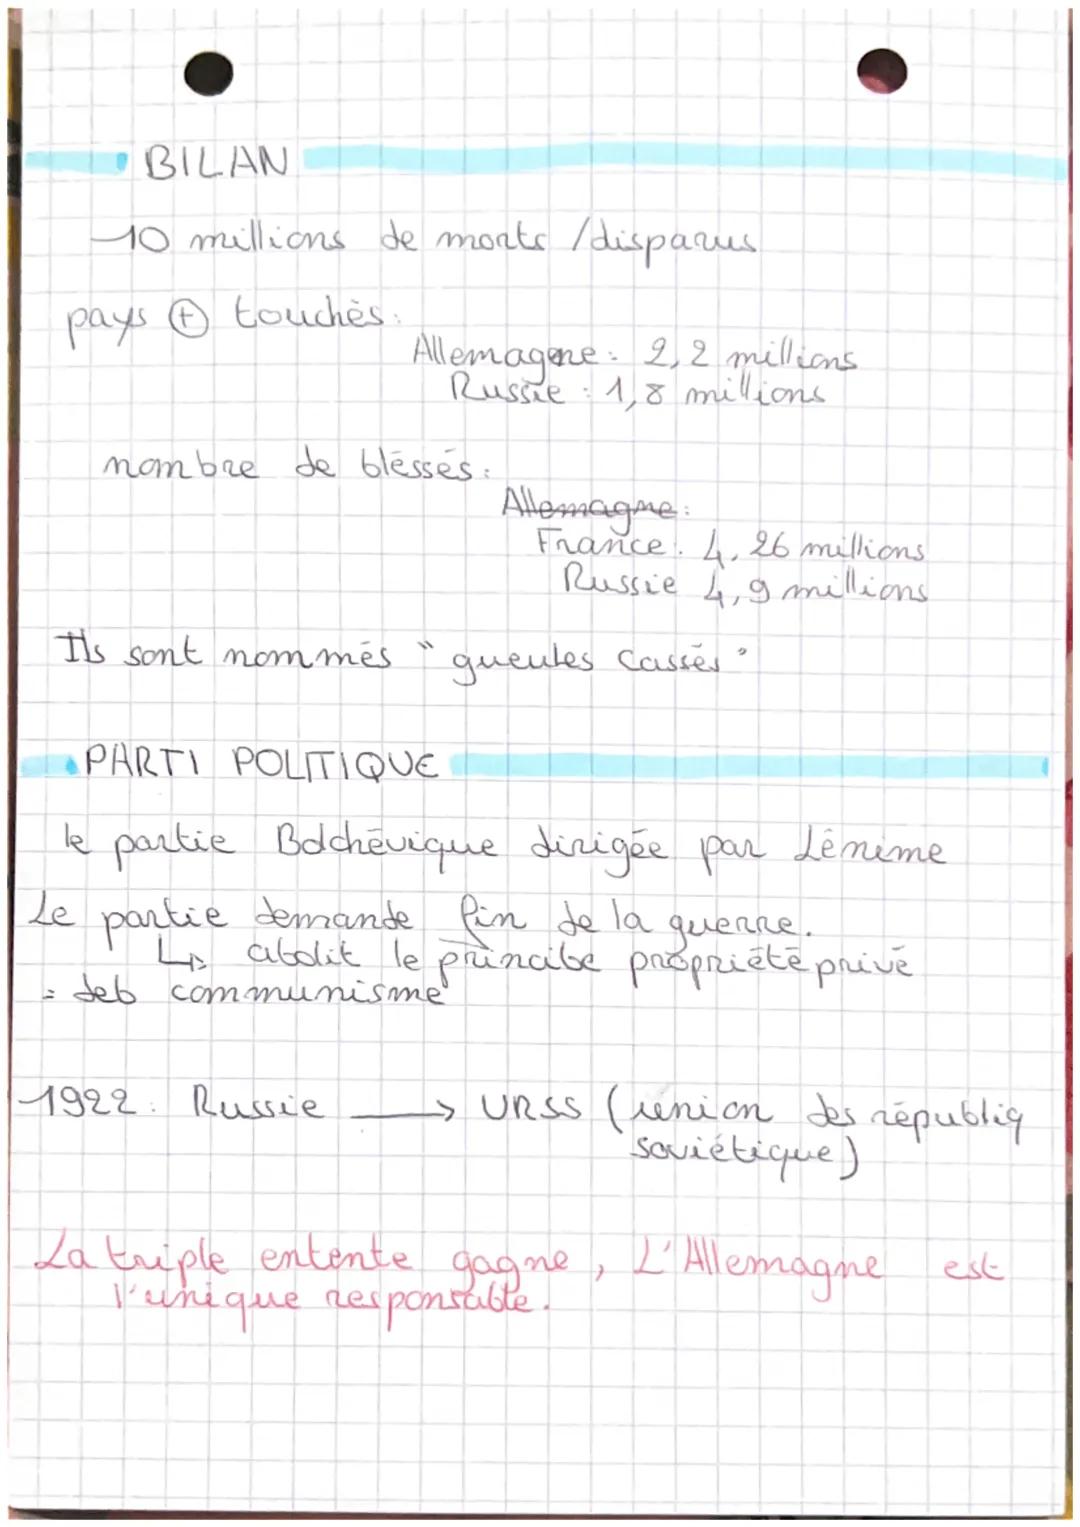 BILAN
10 millions de morts / disparus
pays + touchés:
Allemagne: 2,2 millions
Russie : 1,8 millions
nombre de bléssés:
Allemagne:
France: 4,26 millions
Russie 4,9 millions
Ils sont nommés "gueules cassés"
PARTI POLITIQUE
le partie Bolchévique dirigée par Lénine
Le partie demande fin de la guerre.
↳ abolit le principe propriété privé
= deb communisme
1922: Russie → URSS (union des républiq
soviétique)
La triple entente gagne, L'Allemagne est
l'unique responsable.